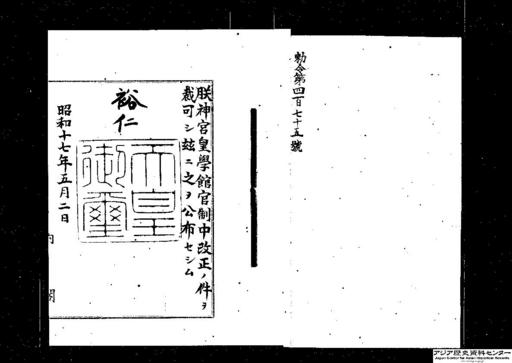 勅令第四百七十五號
朕神宮皇學館官制中改正ノ件ヲ
裁可シ玆ニ之ヲ公布セシム
裕仁
天皇御璽
昭和十七年五月二日
内閣
アジア歴史資料センター
Japan Center for Asian Historical Records